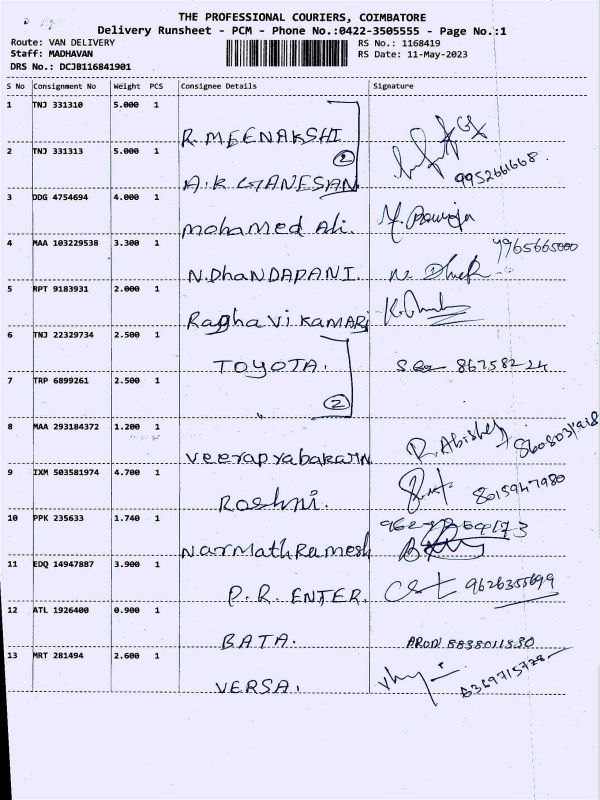 THE PROFESSIONAL COURIERS, COIMBATORE
Delivery Runsheet - PCM - Phone No.:0422-3505555 - Page No.:1
Route: VAN DELIVERY RS No.: 1168419
Staff: MADHAVAN RS Date: 11-May-2023
DRS No.: DCJB116841901
S No Consignment No Weight PCS Consignee Details Signature
1 TNJ 331310 5.000 1
R. MEENAKSHI
2 TNJ 331313 5.000 1 2
A.K GANESAN 9952661668.
3 DDG 4754694 4.000 1
mohamed Ali.
4 MAA 103229538 3.300 1 9965665000
N.DhANDAPANI.
5 RPT 9183931 2.000 1
Raghavi KAMARJ
6 TNJ 22329734 2.500 1
TOYOTA. 86758224
7 TRP 6899261 2.500 1
2
8 MAA 293184372 1.200 1
veeraprabakaran R. Abishek
9 IXM 503581974 4.700 1
Roshni. 8015947980
10 PPK 235633 1.740 1
Narmath Ramesh
11 EDQ 14947887 3.900 1
P.R. ENTER. 9626355699
12 ATL 1926400 0.900 1
BATA. ARUN 8838011530
13 MRT 281494 2.600 1
VERSA. 6369715728